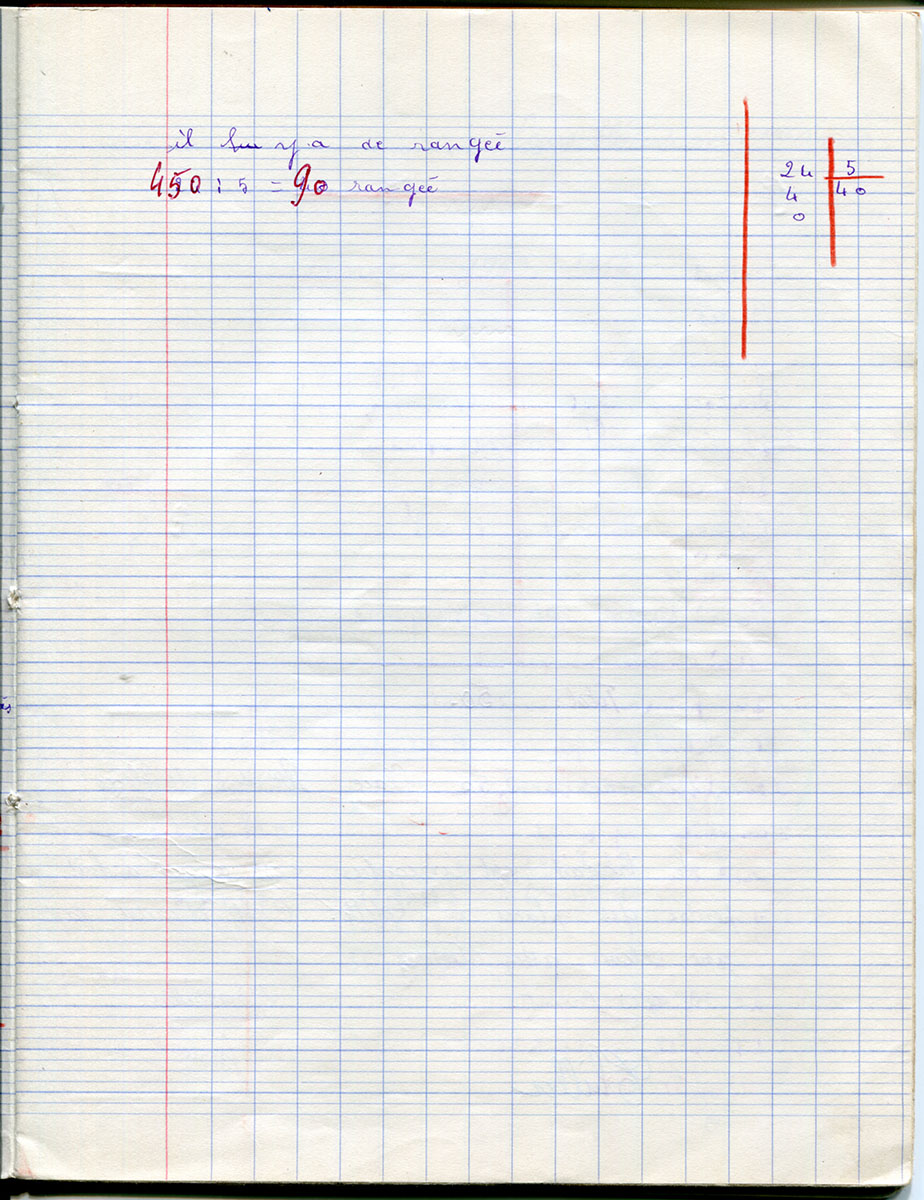 il y a de rangée
450 : 5 = 90 rangée
24 5
4 40
0